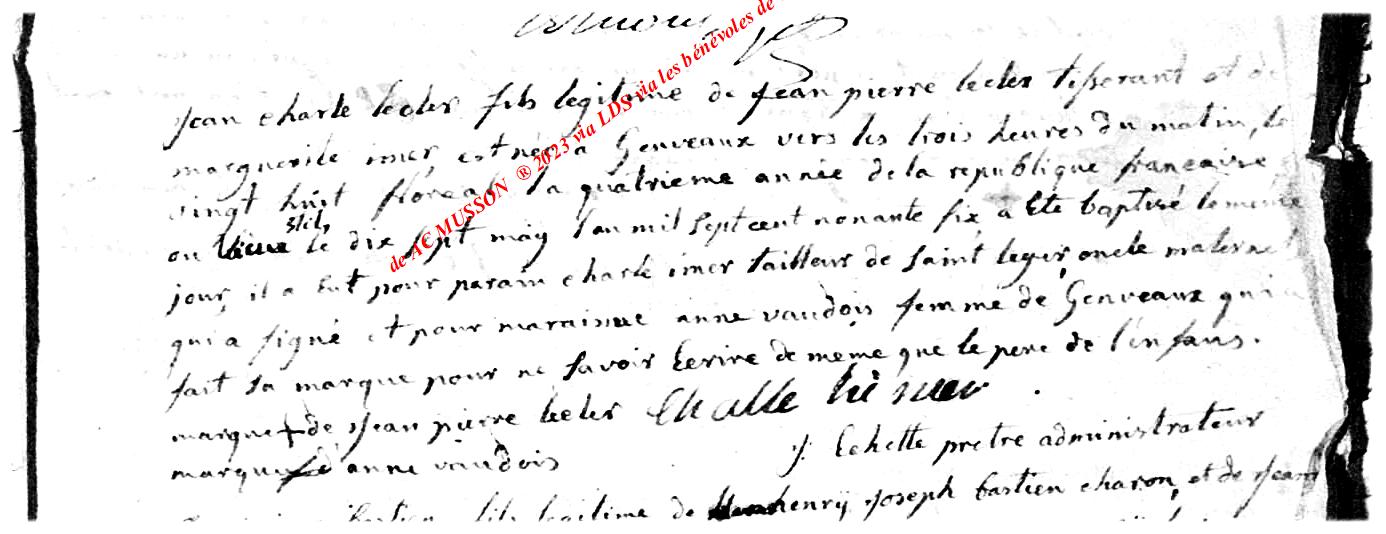 de ACMUSSON ® 2023 via LDS via les bénévoles de
jean charle lecler fils legitime de jean pierre lecler tisserant et de
marguerite imer est né a Genveaux vers les trois heures du matin, le
vingt huit floreal la quatrieme année de la republique francaise
ou vieux stile le dix sept may l'an mil sept cent nonante six a Ete baptisé le meme
jour, il a Eut pour parain charle imer tailleur de saint leger, oncle maternel
qui a signé et pour maraine anne vaudois femme de Genveaux qui a
fait sa marque pour ne savoir Ecrire de meme que le pere de l'enfans.
marque + de jean pierre lecler
marque d'anne vaudois
j: Echette pretre administrateur
fils legitime de henrÿ joseph bastien charon, et de jean